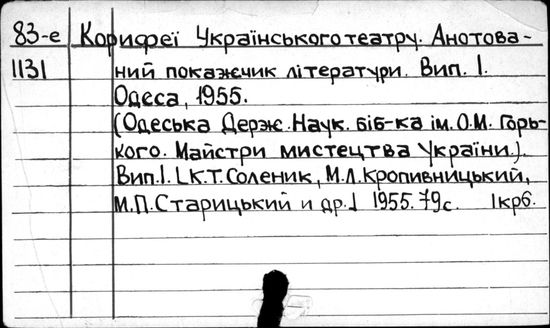 83-е Корифеї Українського театру. Анотова-
1131 ний покажчик літератури. Вип. 1.
Одеса, 1955.
(Одеська Держ. Наук. біб-ка ім. О.М. Горь-
кого. Майстри мистецтва України.).
Вип.1. [К.Т. Соленик, М.Л. Кропивницький,
М.П. Старицький и др.] 1955. 79с. 1крб.